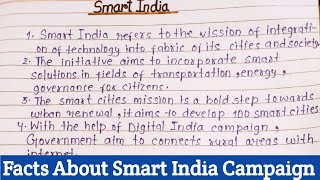 Smart India
1. Smart India refers to the vission of integrati-
on of technology into fabric of its cities and society.
2. The initiative aims to incorporate smart
solutions in fields of transportation, energy,
governance for citizens.
3. The smart cities mission is a bold step towards
urban renewal, it aims to develop 100 smart cities
4. With the help of Digital India campaign,
Government aim to connects rural areas with
internet.
Facts About Smart India Campaign